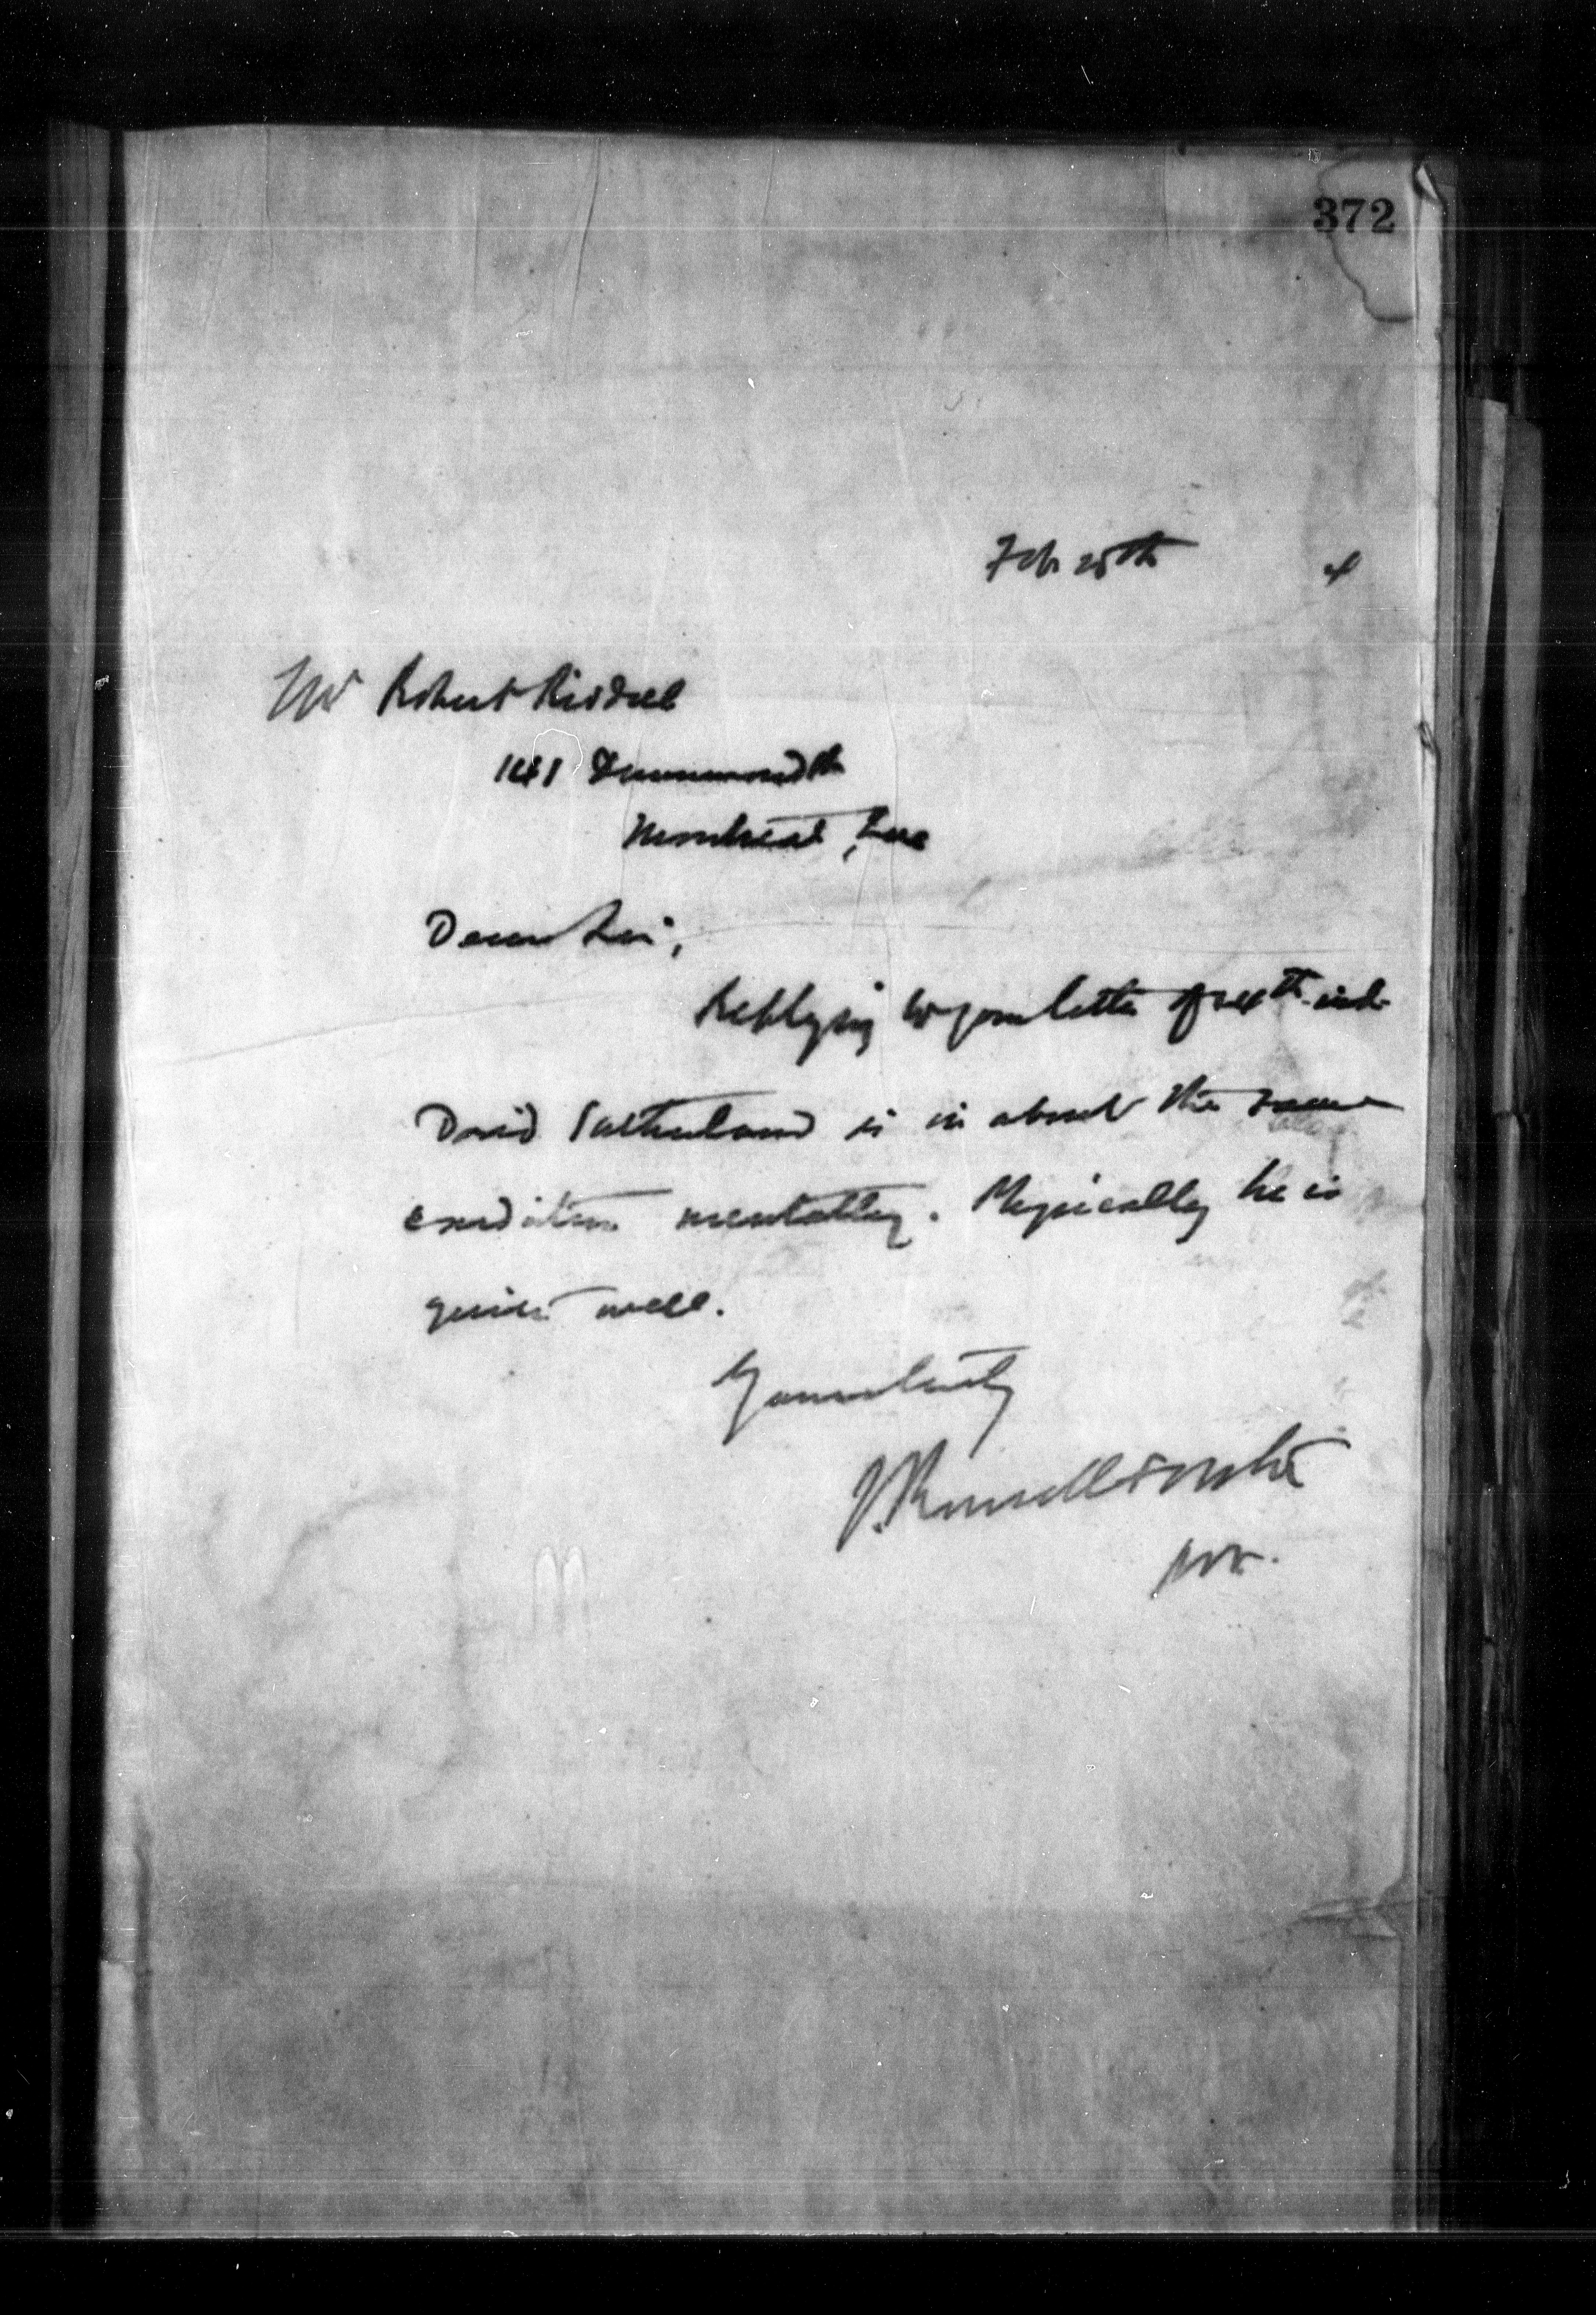 372
Feb 25th 4
Mr Robert Riddell
141 Drummond St
Montreal, Que
Dear Sir,
Replying to your letter of 24th inst.
David Sutherland is in about the same
condition mentally. Physically he is
quite well.
Yours truly